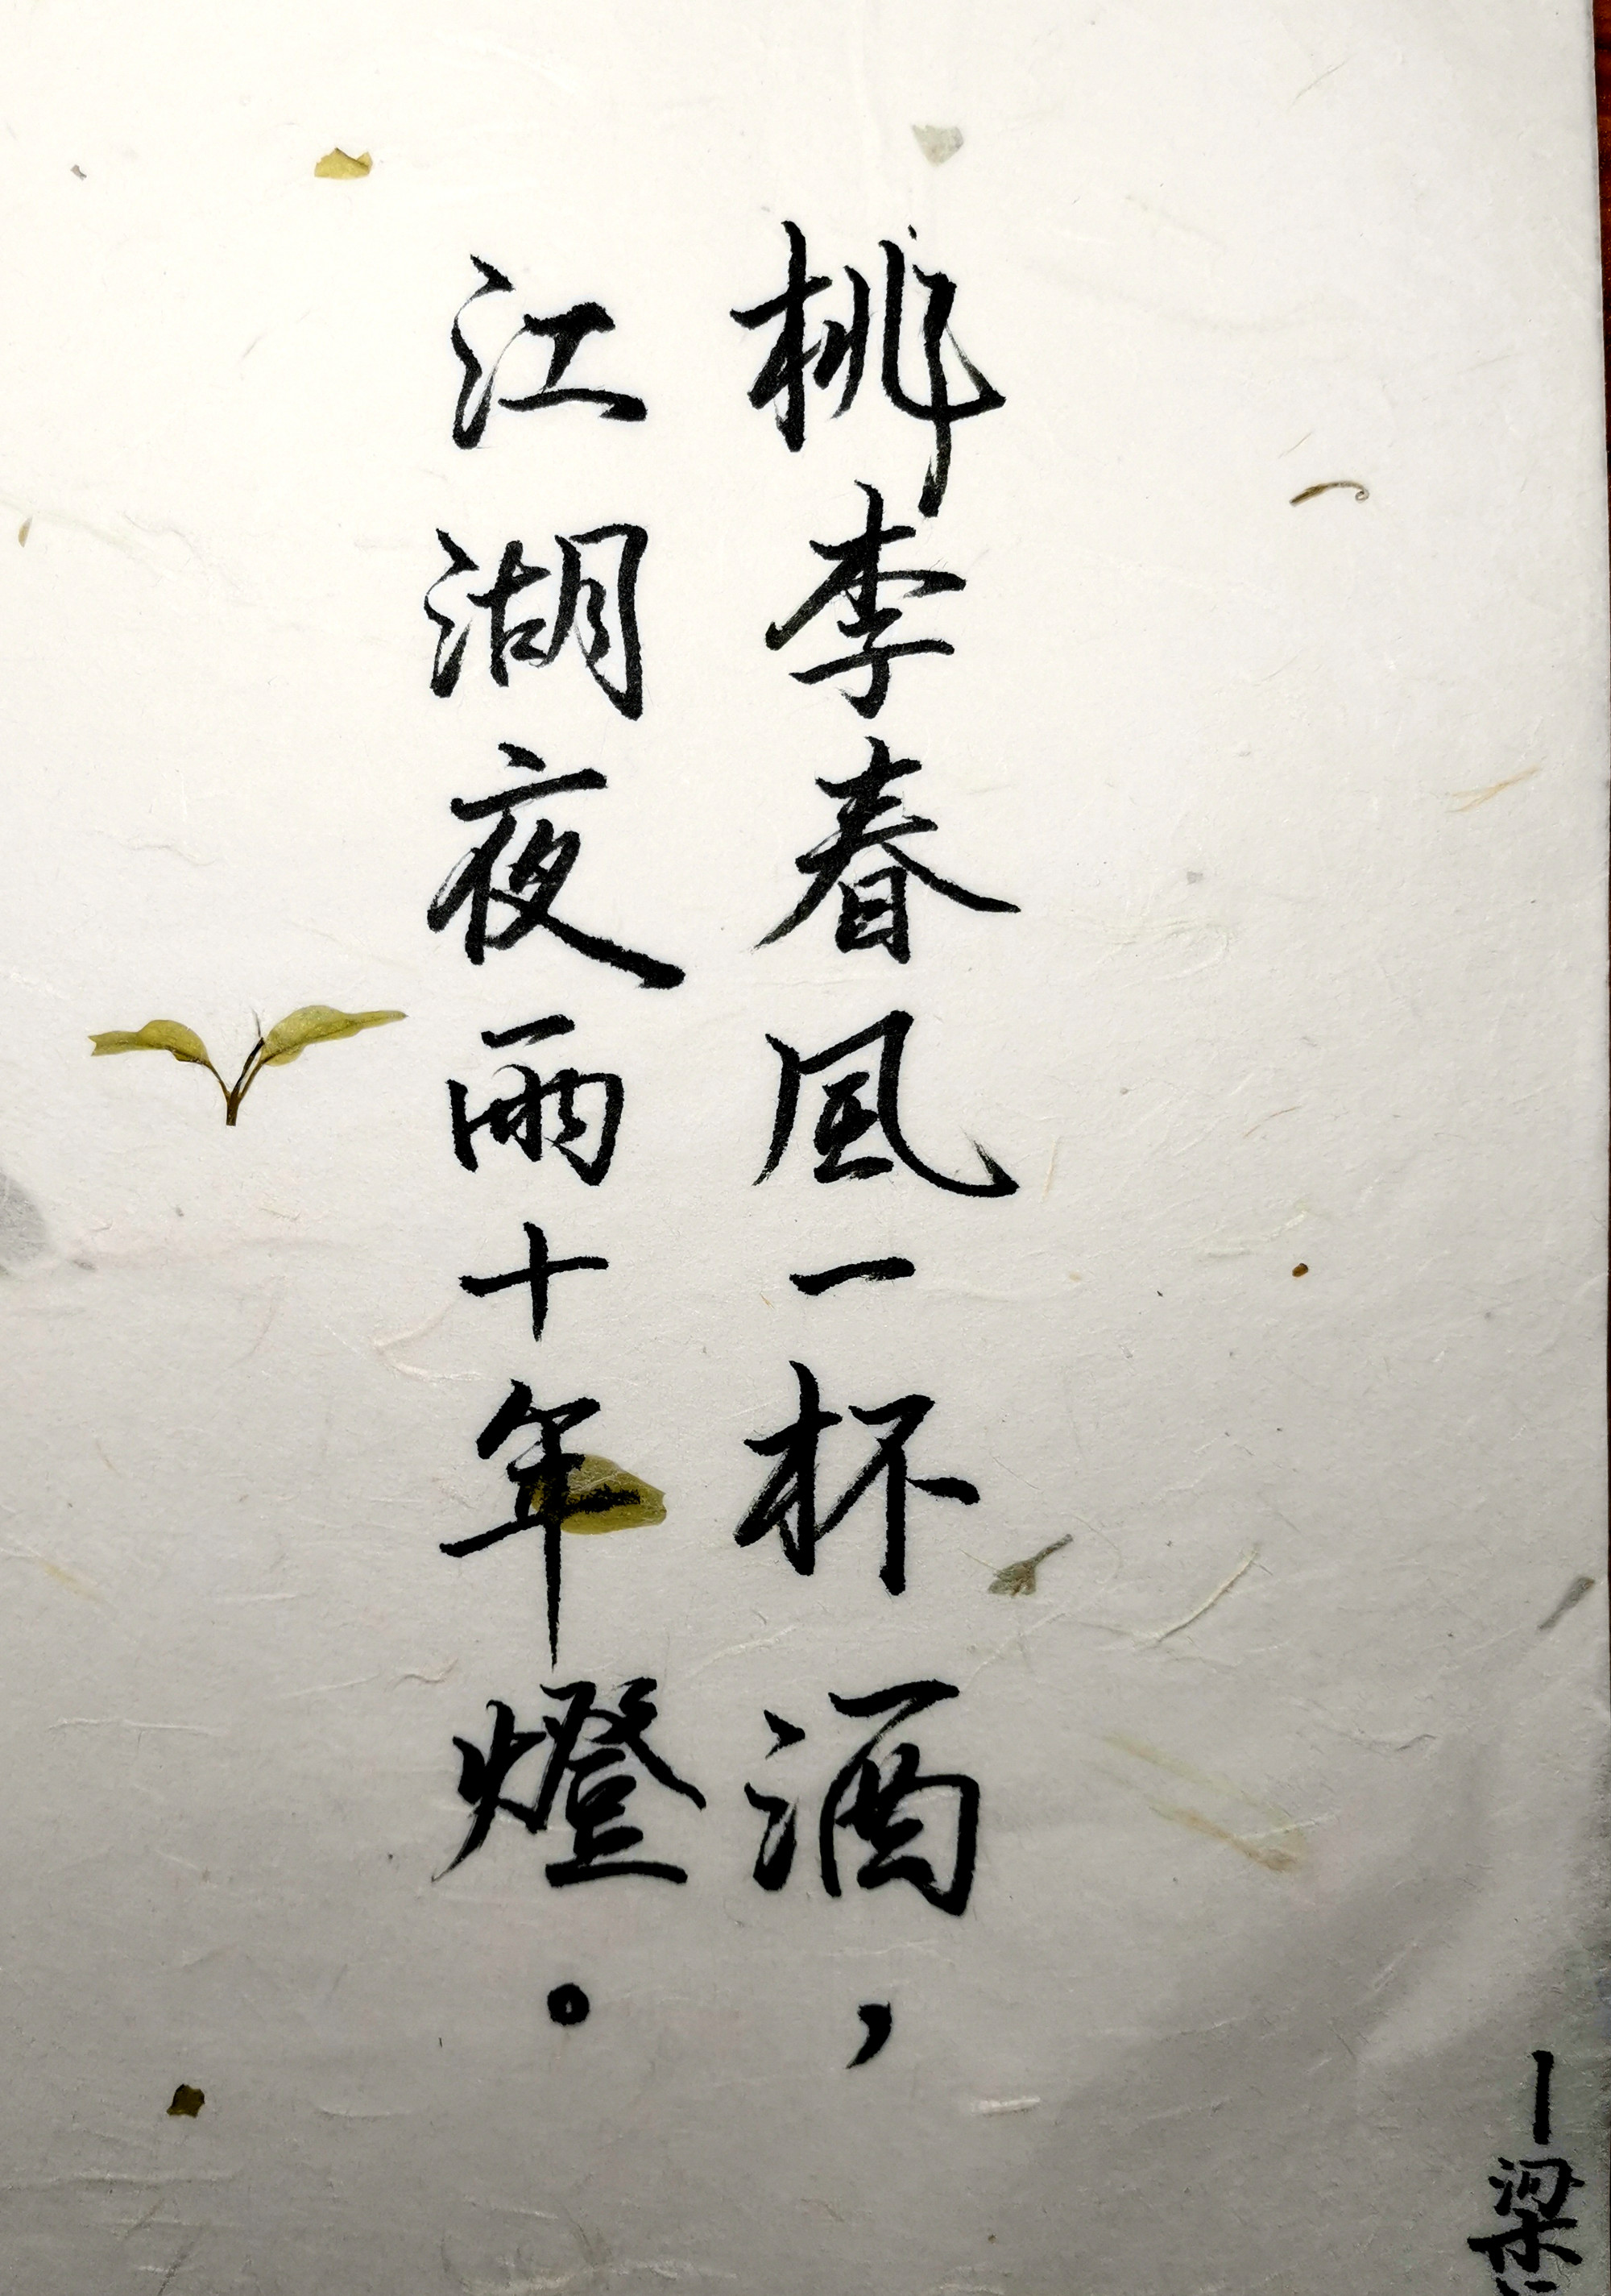 桃李春風一杯酒，
江湖夜雨十年燈。
—梁